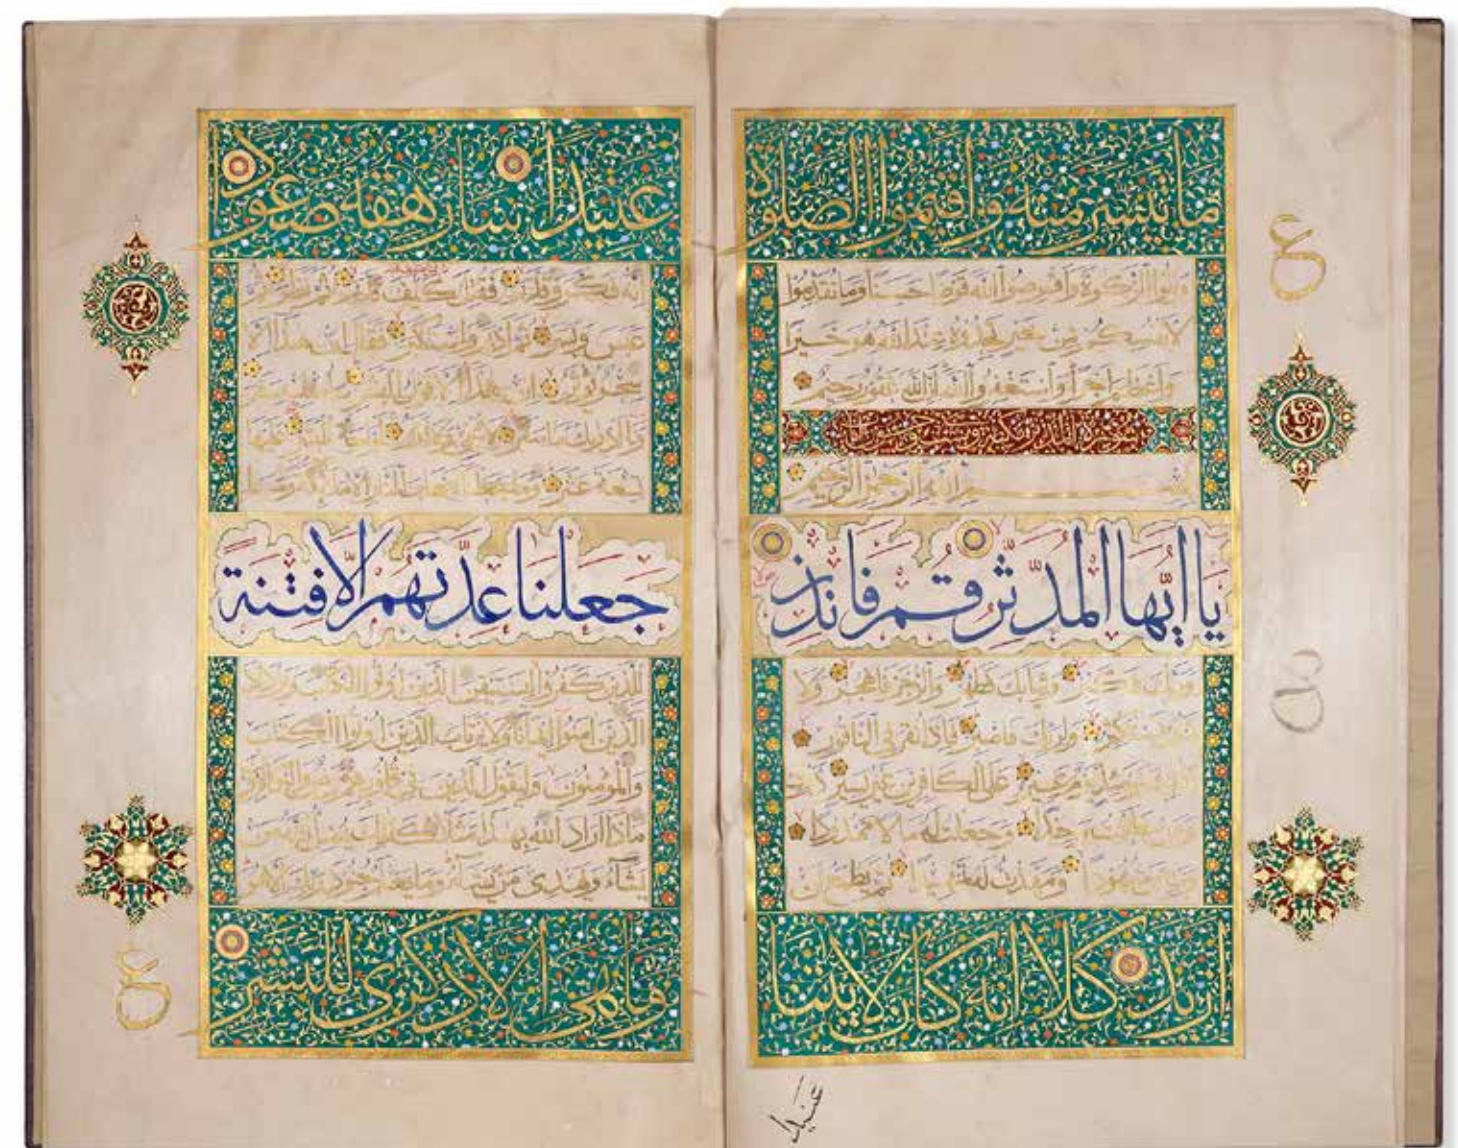 ما تيسر منه واقيموا الصلوة
واتوا الزكوة واقرضوا الله قرضا حسنا وما تقدموا
لانفسكم من خير تجدوه عند الله هو خيرا
واعظم اجرا واستغفروا الله ان الله غفور رحيم
سورة المدثر مكية
بسم الله الرحمن الرحيم
يا ايها المدثر قم فانذر
وربك فكبر وثيابك فطهر والرجز فاهجر ولا
تمنن تستكثر ولربك فاصبر فاذا نقر في الناقور
فذلك يومئذ يوم عسير على الكافرين غير يسير
ومن خلقت وحيدا وجعلت له مالا ممدودا
وبنين شهودا ومهدت له تمهيدا ثم يطمع ان
ازيد كلا انه كان لاياتنا
عنيدا
عنيدا سارهقه صعودا
انه فكر وقدر فقتل كيف قدر ثم
عبس وبسر ثم ادبر واستكبر فقال ان هذا الا
سحر يؤثر ان هذا الا قول البشر ساصليه سقر
وما ادريك ما سقر لا تبقي ولا تذر لواحة للبشر عليها
تسعة عشر وما جعلنا اصحاب النار الا ملائكة وما
جعلنا عدتهم الا فتنة
للذين كفروا ليستيقن الذين اوتوا الكتاب ويزداد
الذين امنوا ايمانا ولا يرتاب الذين اوتوا الكتب
والمؤمنون وليقول الذين في قلوبهم مرض والكافرون
ماذا اراد الله بهذا مثلا كذلك يضل الله من
يشاء ويهدي من يشاء وما يعلم جنود ربك الا هو
وما هي الا ذكرى للبشر
ع
ع